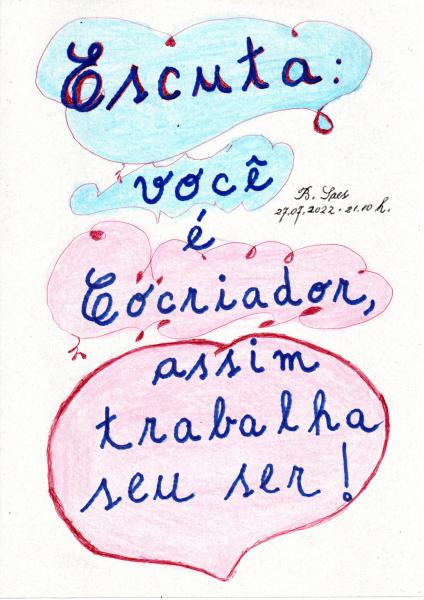 Escuta:
você
B. Saes
27.07.2022 - 21.10 h.
é
Cocriador,
assim
trabalha
seu ser!